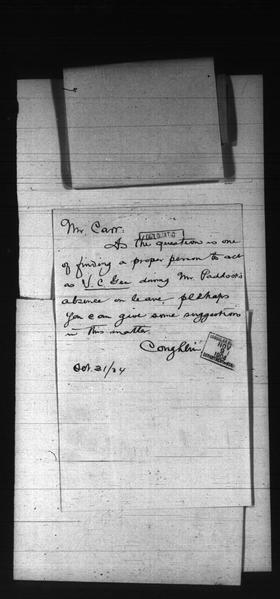 Mr. Carr:
As the question is one
of finding a proper person to act
as V. C. Gen during Mr. Paddock's
absence on leave perhaps
you can give some suggestions
in this matter.
Coughlin
Oct. 31/24